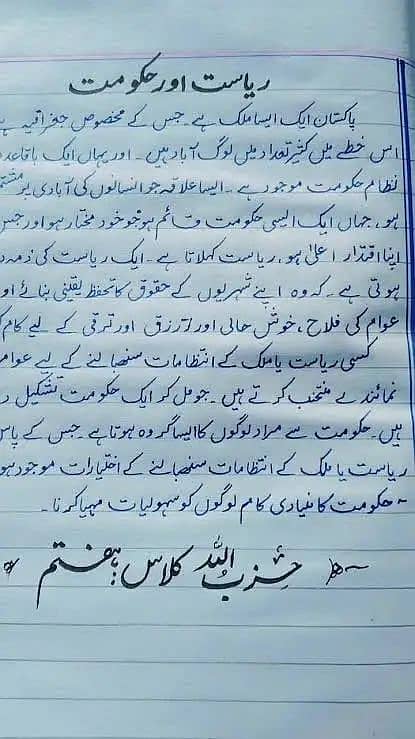 ریاست اور حکومت
پاکستان ایک ایسا ملک ہے۔ جس کے مخصوص جغرافیہ ہے
اس خطے میں کثیر تعداد میں لوگ آباد ہیں۔ اور یہاں ایک باقاعدہ
نظام حکومت موجود ہے۔ ایسا علاقہ جو انسانوں کی آبادی پر مشتم
ہو، جہاں ایک ایسی حکومت قائم ہو جو خود مختار ہو اور جس
اپنا اقتدار اعلیٰ ہو، ریاست کہلاتا ہے۔ ایک ریاست کی ذمہ د
ہوتی ہے۔ کہ وہ اپنے شہریوں کے حقوق کا تحفظ یقینی بنائے او
عوام کی فلاح، خوش حالی اور ترقی کے لیے کام ک
کسی ریاست یا ملک کے انتظامات سنھبالنے کے لیے عوام
نمائندے منتخب کرتے ہیں۔ جو مل کر ایک حکومت تشکیل د
ہیں۔ حکومت سے مراد لوگوں کا ایسا گروہ ہوتا ہے۔ جس کے پاس
ریاست یا ملک کے انتظامات سنھبالنے کے اختیارات موجود ہو
۔ حکومت کا بنیادی کام لوگوں کو سہولیات مہیا کرنا۔
حزب اللہ کلاس: ہفتم